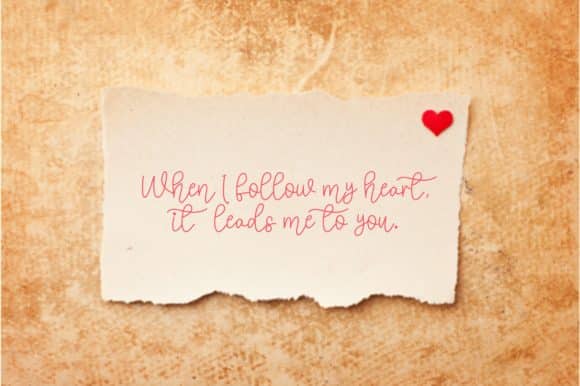 When I follow my heart,
it leads me to you.